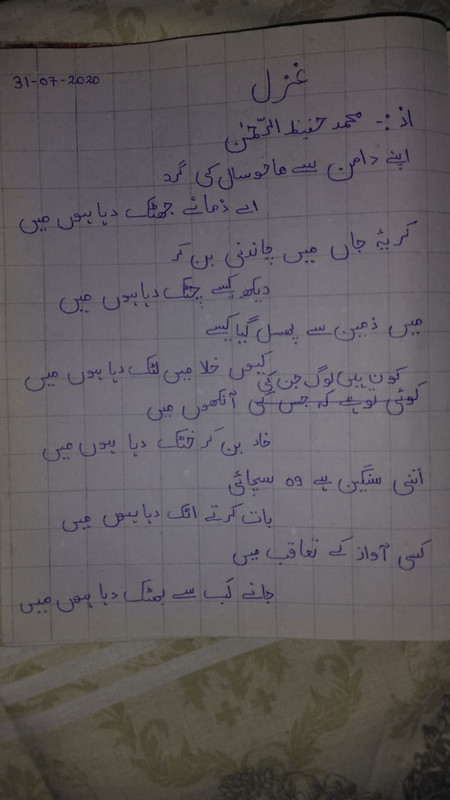 31-07-2020
غزل
از :- محمد حفیظ الرّحمٰن
اپنے دامن سے ماہ و سال کی گرد
اے زمانے جھٹک رہا ہوں میں
کریۂ جاں میں چاندنی بن کر
دیکھ کیسے چٹک رہا ہوں میں
میں زمین سے پھسل گیا کیسے
کیوں خلا میں لٹک رہا ہوں میں
کون ہیں لوگ جن کی
کوئی تو ہے کہ جس کی آنکھوں میں
خار بن کر کھٹک رہا ہوں میں
اتنی سنگین ہے وہ سچائی
بات کرتے اٹک رہا ہوں میں
کسی آواز کے تعاقب میں
جانے کب سے بھٹک رہا ہوں میں